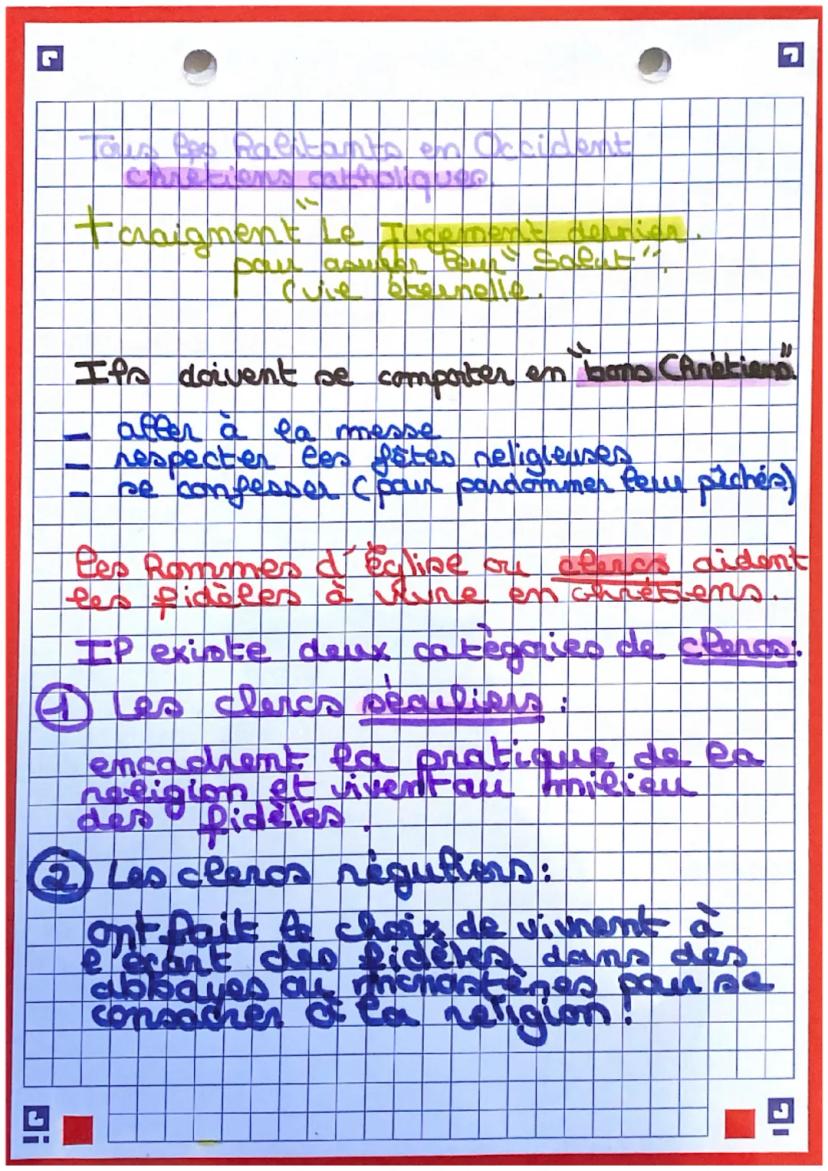 Tous les habitants en Occident
chrétiens catholiques.
+ craignent "Le Jugement dernier.
pour assurer leur "Salut".
(vie éternelle.
Ils doivent se comporter en "bons Chrétiens".
- aller à la messe
- respecter les fêtes religieuses
- se confesser (pour pardonner leur pêchés)
les hommes d'Église ou clercs aident
les fidèles à vivre en chrétiens.
Il existe deux catégories de clercs:
1 Les clercs séculiers :
encadrent la pratique de la
religion et vivent au milieu
des fidèles.
2 Les clercs réguliers :
ont fait le choix de vivrent à
l'écart des fidèles, dans des
abbayes ou monastères pour se
consacrer à la religion !